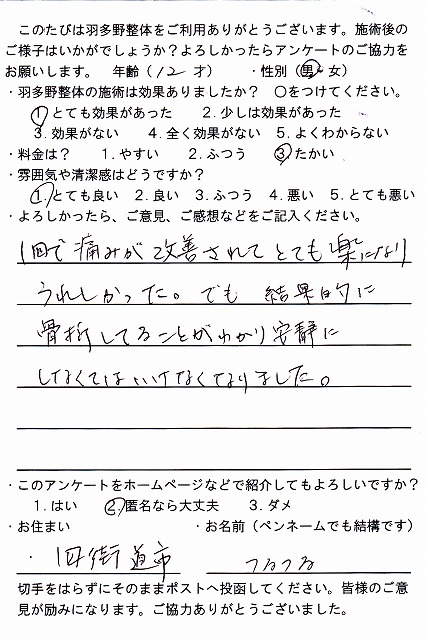 このたびは羽多野整体をご利用ありがとうございます。施術後の
ご様子はいかがでしょうか？よろしかったらアンケートのご協力を
お願いします。 年齢（12 才） ・性別（男・女）
・羽多野整体の施術は効果ありましたか？ 〇をつけてください。
1.とても効果があった 2.少しは効果があった
3.効果がない 4.全く効果がない 5.よくわからない
・料金は？ 1.やすい 2.ふつう 3.たかい
・雰囲気や清潔感はどうですか？
1.とても良い 2.良い 3.ふつう 4.悪い 5.とても悪い
・よろしかったら、ご意見、ご感想などをご記入ください。
1回で痛みが改善されてとても楽になり
うれしかった。でも 結果的に
骨折してることがわかり安静に
しなくてはいけなくなりました。
・このアンケートをホームページなどで紹介してもよろしいですか？
1.はい 2.匿名なら大丈夫 3.ダメ
・お住まい ・お名前（ペンネームでも結構です）
・ 街道市 つるつる
切手をはらずにそのままポストへ投函してください。皆様のご意
見が励みになります。ご協力ありがとうございました。